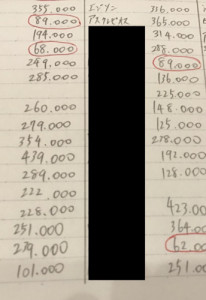 335.000 エンゾン 316.000
89.000 アスクレピオス 365.000
194.000 314.000
68.000 288.000
249.000 89.000
285.000 136.000
225.000
260.000 148.000
279.000 125.000
354.000 228.000
439.000 192.000
289.000 128.000
222.000
228.000 423.00
251.000 364.00
279.000 62.00
101.000 251.0